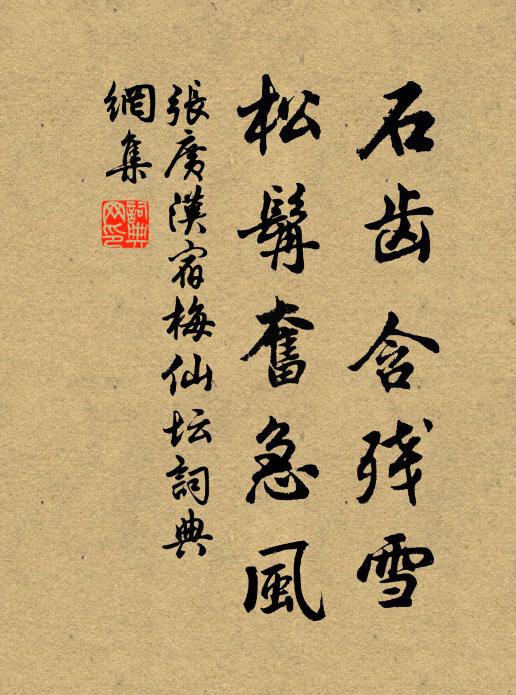 石齿含残雪
松髯奮急風
張廣漢宿梅仙坛詞典
網集
詞典
网印